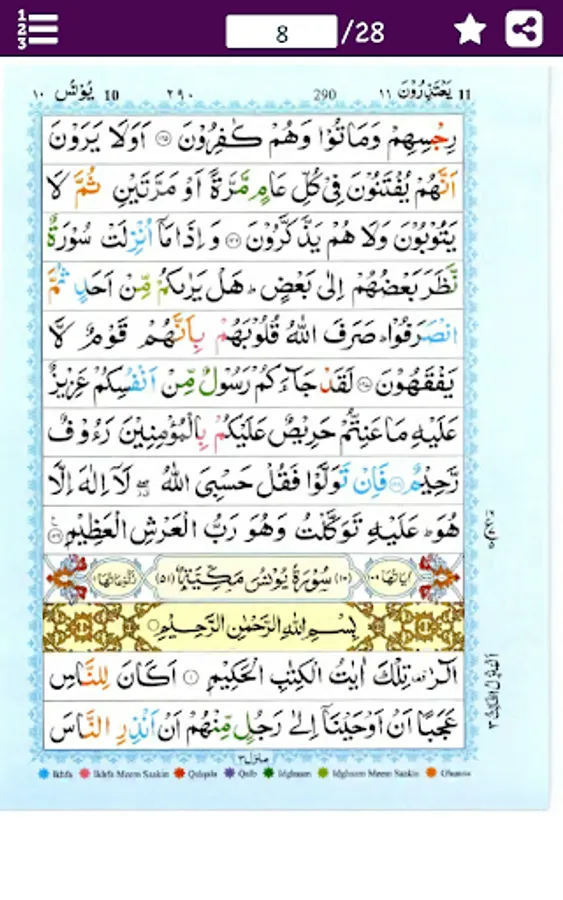 8 /28
11 يَعْتَذِرُوْنَ ١١ 290 ٢٩٠ 10 يُوْنُس ١٠
رِجْسِهِمْ وَمَاتُوْا وَهُمْ كٰفِرُوْنَ ۝١٢٥ اَوَلَا يَرَوْنَ
اَنَّهُمْ يُفْتَنُوْنَ فِىْ كُلِّ عَامٍ مَّرَّةً اَوْ مَرَّتَيْنِ ثُمَّ لَا
يَتُوْبُوْنَ وَلَا هُمْ يَذَّكَّرُوْنَ ۝١٢٦ وَاِذَا مَاۤ اُنْزِلَتْ سُوْرَةٌ
نَّظَرَ بَعْضُهُمْ اِلٰى بَعْضٍ ؕ هَلْ يَرٰىكُمْ مِّنْ اَحَدٍ ثُمَّ
انْصَرَفُوْا ؕ صَرَفَ اللّٰهُ قُلُوْبَهُمْ بِاَنَّهُمْ قَوْمٌ لَّا
يَفْقَهُوْنَ ۝١٢٧ لَقَدْ جَآءَكُمْ رَسُوْلٌ مِّنْ اَنْفُسِكُمْ عَزِيْزٌ
عَلَيْهِ مَا عَنِتُّمْ حَرِيْصٌ عَلَيْكُمْ بِالْمُؤْمِنِيْنَ رَءُوْفٌ
رَّحِيْمٌ ۝١٢٨ فَاِنْ تَوَلَّوْا فَقُلْ حَسْبِىَ اللّٰهُ ۖ لَاۤ اِلٰهَ اِلَّا
هُوَ ؕ عَلَيْهِ تَوَكَّلْتُ وَهُوَ رَبُّ الْعَرْشِ الْعَظِيْمِ ۝١٢٩
اٰيَاتُهَا ١٠٩ (١٠) سُوْرَةُ يُوْنُسَ مَكِّيَّةٌ (٥١) رُكُوْعَاتُهَا ١١
بِسْمِ اللّٰهِ الرَّحْمٰنِ الرَّحِيْمِ
الٓرٰ ۚ تِلْكَ اٰيٰتُ الْكِتٰبِ الْحَكِيْمِ ۝١ اَكَانَ لِلنَّاسِ
عَجَبًا اَنْ اَوْحَيْنَاۤ اِلٰى رَجُلٍ مِّنْهُمْ اَنْ اَنْذِرِ النَّاسَ
منزل ٣
Ikhfa Ikhfa Meem Saakin Qalqala Qalb Idghaam Idghaam Meem Saakin Ghunna